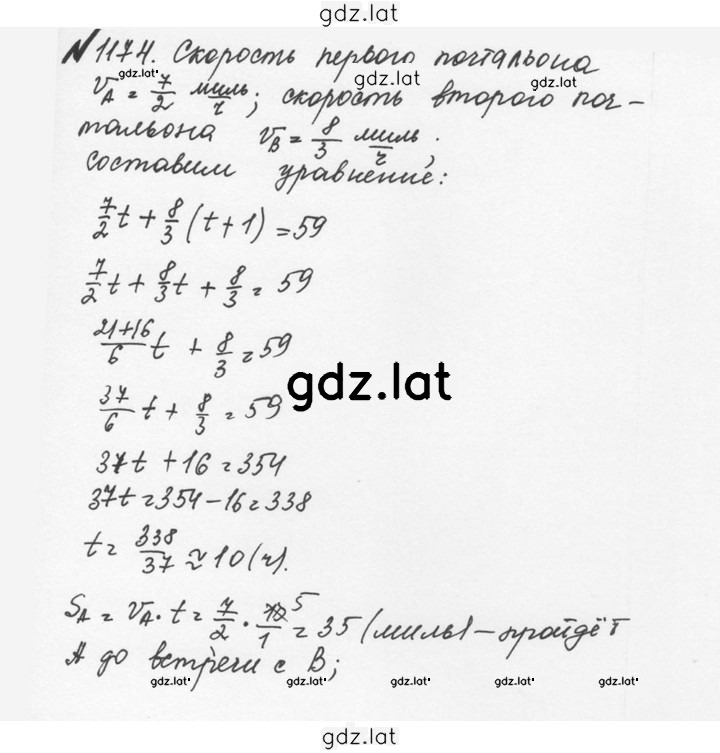 gdz.lat
№1174. Скорость первого почтальона
gdz.lat
v_A = 7/2 миль/ч; скорость второго поч-
gdz.lat gdz.lat
тальона v_B = 8/3 миль/ч;
составим уравнение:
7/2 t + 8/3 (t+1) = 59
7/2 t + 8/3 t + 8/3 = 59
(21+16)/6 t + 8/3 = 59
gdz.lat
37/6 t + 8/3 = 59
37t + 16 = 354
37t = 354 - 16 = 338
t = 338/37 ≈ 10 (ч).
S_A = v_A · t = 7/2 · 10/1 5 = 35 (миль) – пройдёт
А до встречи с В;
gdz.lat gdz.lat gdz.lat gdz.lat gdz.lat
gdz.lat